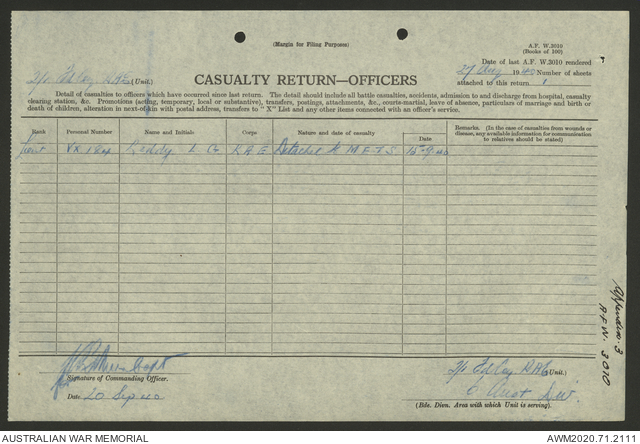 (Margin for Filing Purposes)
A.F. W.3010
(Books of 100)
Date of last A.F. W.3010 rendered
27 Aug 1940 Number of sheets
attached to this return 1
2/1 Fd Coy RAE (Unit.)
CASUALTY RETURN—OFFICERS
Detail of casualties to officers which have occurred since last return. The detail should include all battle casualties, accidents, admission to and discharge from hospital, casualty
clearing station, &c. Promotions (acting, temporary, local or substantive), transfers, postings, attachments, &c., courts-martial, leave of absence, particulars of marriage and birth or
death of children, alteration in next-of-kin with postal address, transfers to "X" List and any other items connected with an officer's service.
Rank Personal Number Name and Initials Corps Nature and date of casualty Date Remarks. (In the case of casualties from wounds or
disease, any available information for communication
to relatives should be stated)
Lieut VX 184 L. G. RAE Detached to M.E.T.S. 15-9-40
Appendix 3
A.F.W. 3010
Capt
Signature of Commanding Officer.
Date 20 Sep 40
2/1 Fd Coy RAE (Unit.)
6 Aust Div.
(Bde. Divn. Area with which Unit is serving).
AUSTRALIAN WAR MEMORIAL
AWM2020.71.2111